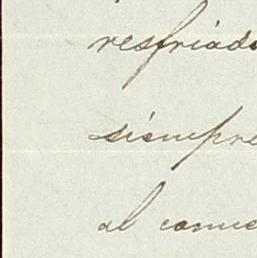 resfriado
siempre
al come